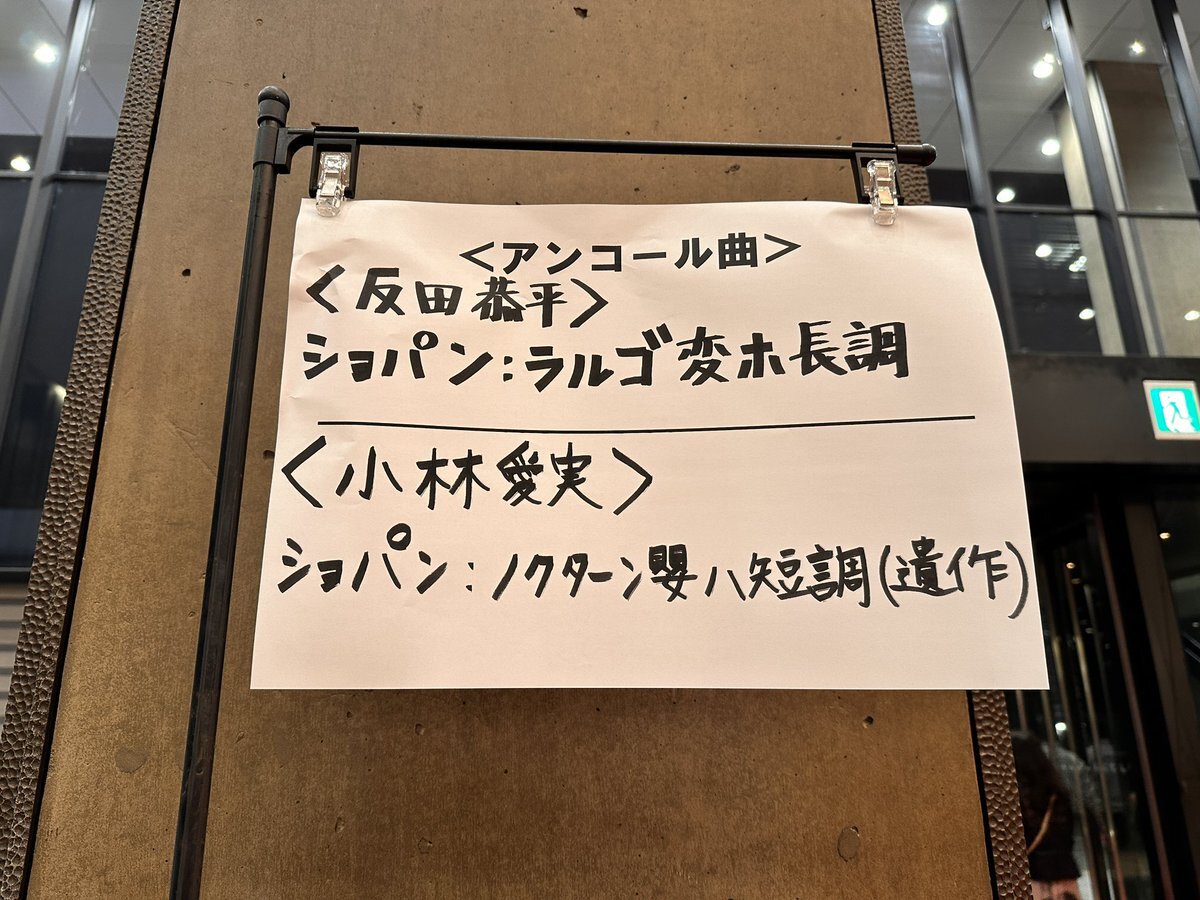 <アンコール曲>
<反田恭平>
ショパン:ラルゴ変ホ長調
<小林愛実>
ショパン:ノクターン嬰ハ短調(遺作)